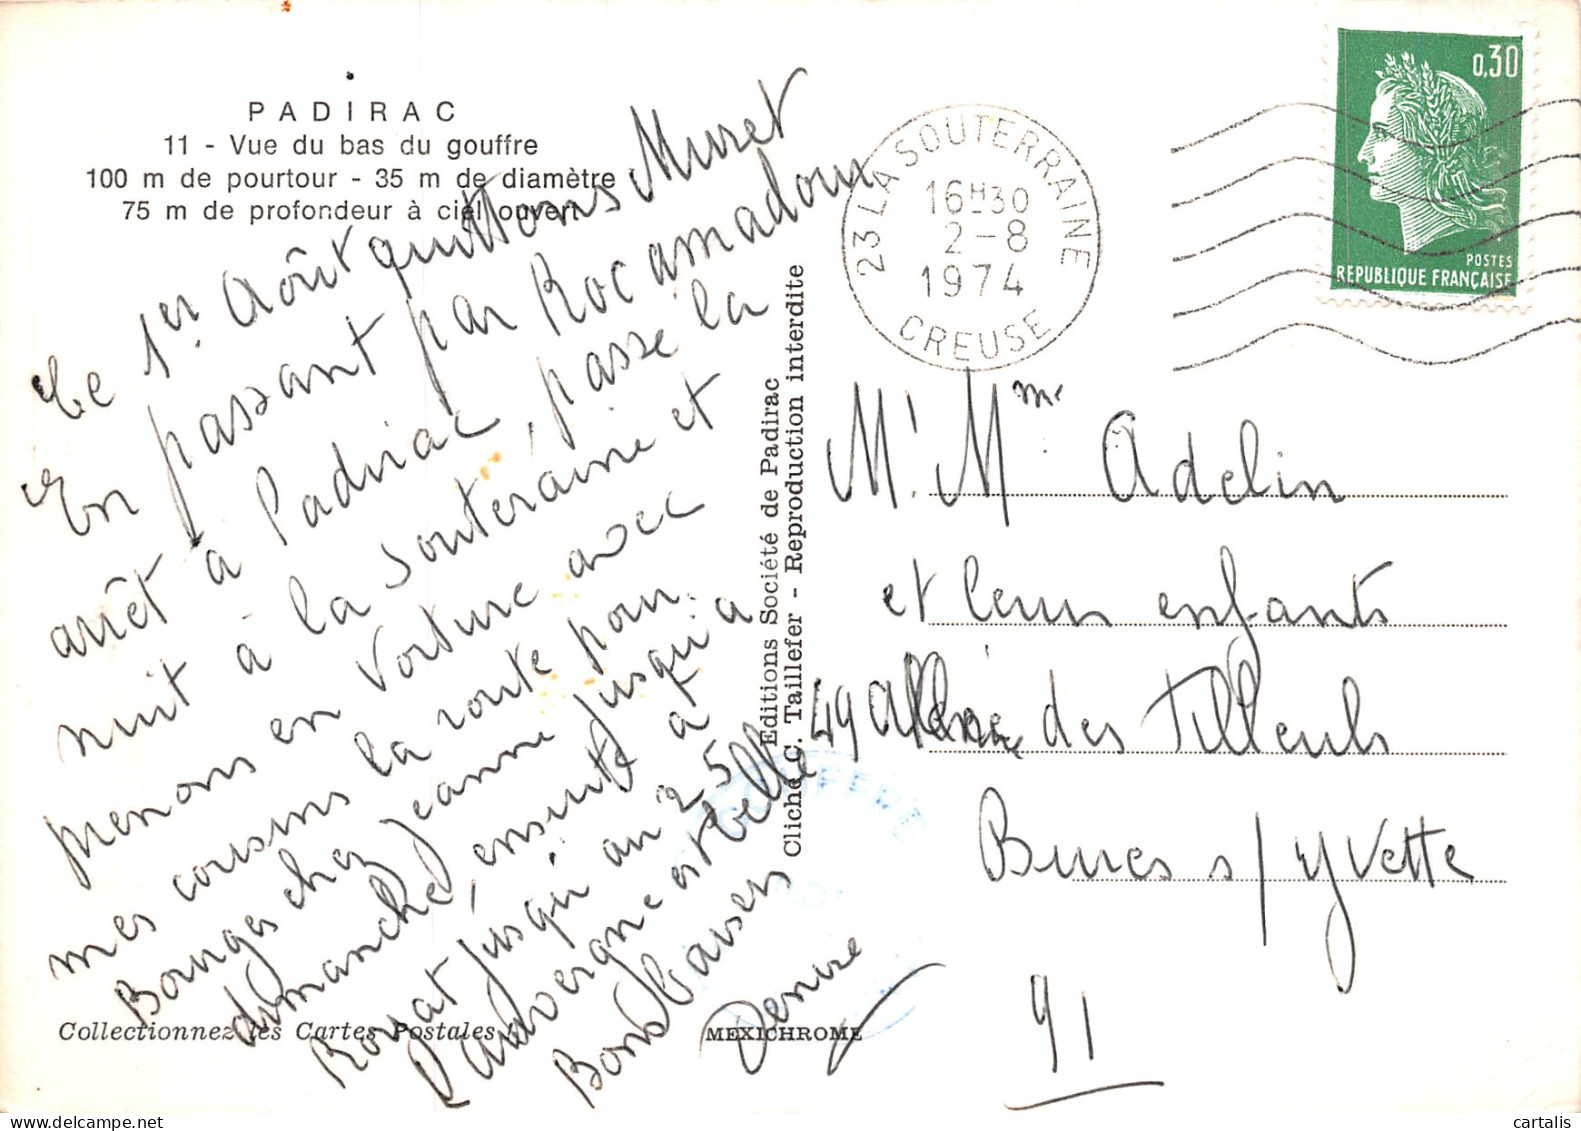 PADIRAC
11 - Vue du bas du gouffre
100 m de pourtour - 35 m de diamètre
75 m de profondeur à ciel ouvert
Le 1er Août quittons Muret
En passant par Rocamadour
arrêt à Padirac, passe la
nuit à la Souteraine et
prenons en voiture avec
mes cousins la route pour
Bourges chez Jeanne jusqu'à
dimanche, ensuite à
Royat jusqu'au 25
L'auvergne est belle
Bons baisers
Denise
Collectionnez les Cartes Postales
MEXICHROME
Editions Société de Padirac
Cliché C. Taillefer - Reproduction interdite
GOUFFRE
23 LA SOUTERRAINE
16H30
2-8
1974
CREUSE
0,30
POSTES
REPUBLIQUE FRANÇAISE
M. Mme Adelin
et leurs enfants
49 Allée des Tilleuls
Bures s/Yvette
91
cartalis
www.delcampe.net